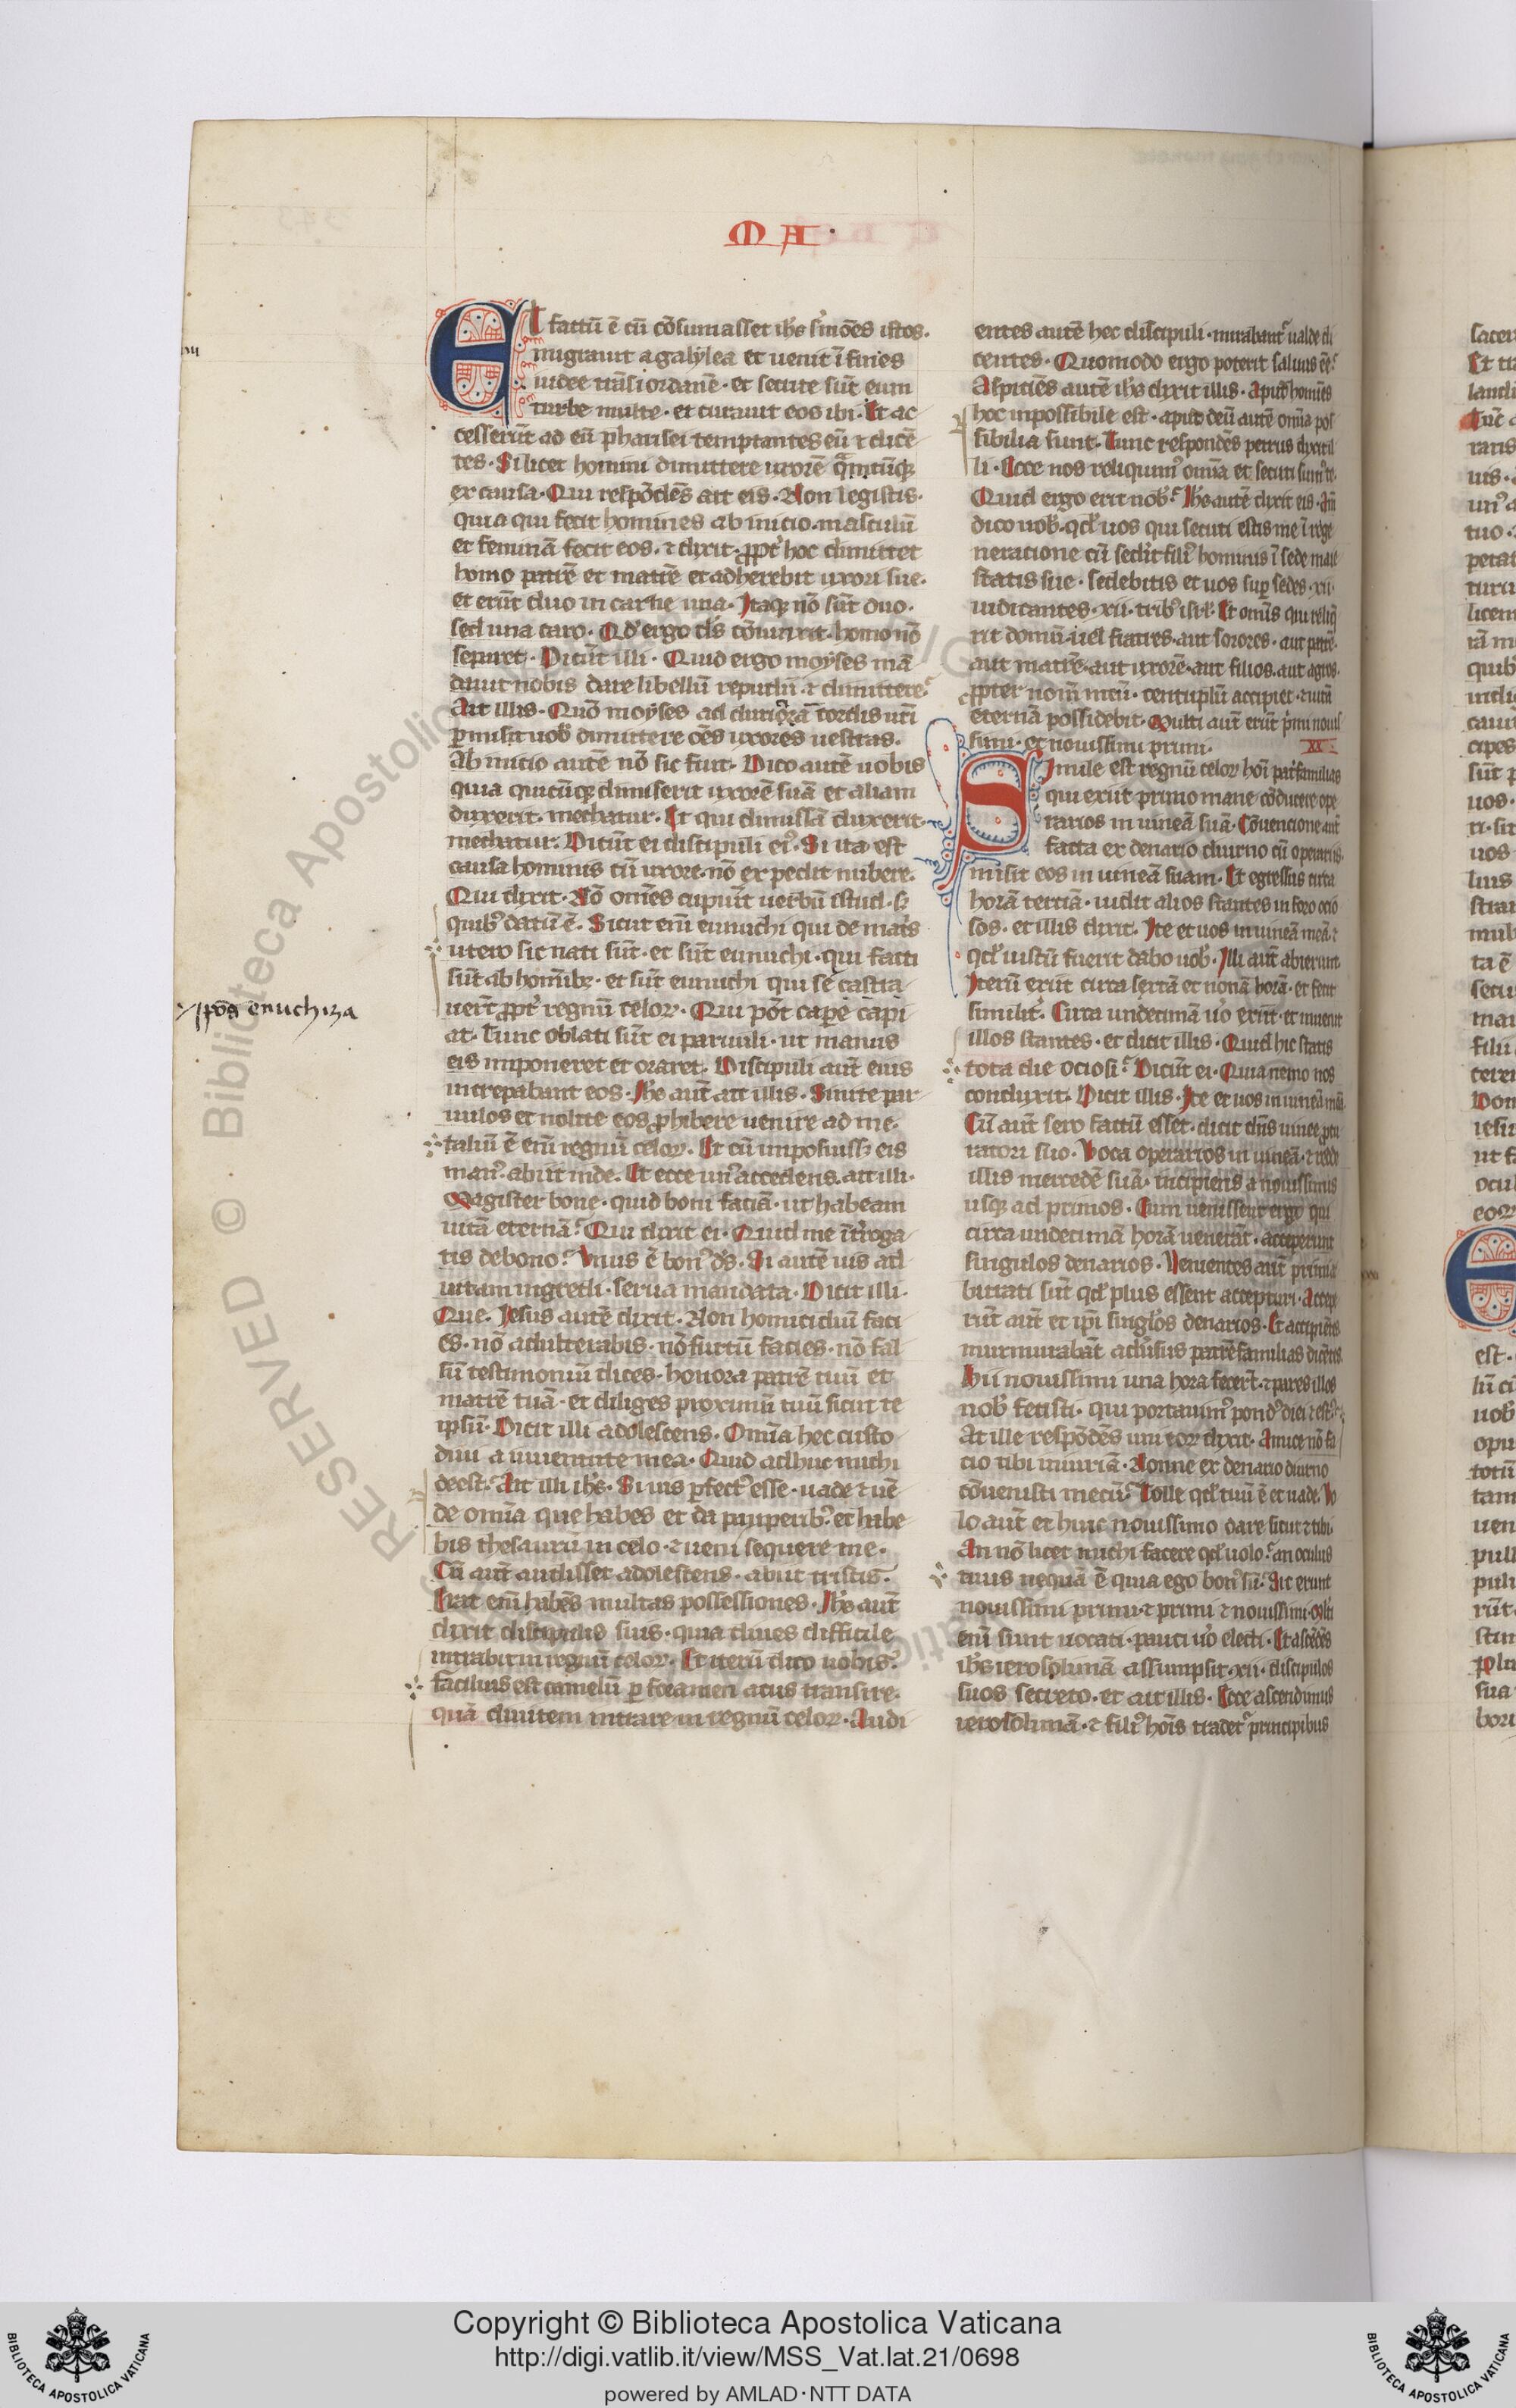 M A
Et factū ē cū cōsumasset ihs s'mōes istos.
migrauit a galylea et uenit ī fines
iudee trāsiordanē. et secute sūt eum
turbe multe. et curauit eos ibi. Et ac
cesserūt ad eū pharisei temptantes eū ⁊ dicē
tes. Si licet homini dimittere uxorē q̄mcūq;
ex causa. Qui respōdēs ait eis. Non legistis.
quia qui fecit homines ab inicio. masculū
et feminā fecit eos. ⁊ dixit. ꝓpt' hoc dimittet
homo patrē et matrē et adherebit uxori sue.
et erūt duo in carne una. Itaq; nō sūt duo.
sed una caro. Qd' ergo ds cōiunxit. homo nō
separet. Dicūt illi. Quid ergo moyses mā
dauit nobis dare libellū repudii. ⁊ dimittere
Ait illis. Quō moyses ad duriciā cordis uri
ꝑmisit uob' dimittere oēs uxores uestras.
Ab inicio autē nō sic fuit. Dico autē uobis
quia quicūq; dimiserit uxorē suā et aliam
duxerit. mechatur. Et qui dimissā duxerit.
mechatur. Dicūt ei discipuli ei'. Si ita est
causa hominis cū uxore. nō expedit nubere.
Qui dixit. Nō omēs capiūt uerbū istud. s;
quib' datū ē. Sicut enī eunuchi qui de mat's
utero sic nati sūt. et sūt eunuchi. qui facti
sūt ab homīb;. et sūt eunuchi qui se castra
uerūt ꝓpt' regnū celoꝝ. Qui pōt capē capi
at. Tunc oblati sūt ei paruuli. ut manus
eis imponeret et oraret. Discipuli aūt eius
increpabant eos. Ihs aūt ait illis. Sinite par
uulos et nolite eos ꝓhibere uenire ad me.
taliū ē enī regnū celoꝝ. Et cū imposuiss; eis
man'. abiit inde. Et ecce un' accedens. ait illi.
Magister bone. quid boni faciā. ut habeam
uitā eternā? Qui dixit ei. Quid me īt'roga
tis de bono? Vnus ē bon' ds. Si autē uis ad
uitam ingredi. serua mandata. Dicit illi.
Que. Iesus autē dixit. Non homicidiū faci
es. nō adulterabis. nō furtū facies. nō fal
sū testimoniū dices. honora patrē tuū et
matrē tuā. et diliges proximū tuū sicut te
ipsū. Dicit illi adolescens. Omīa hec custo
diui a iuuentute mea. Quid adhuc michi
deest. Ait illi ihs. Si uis ꝑfect' esse. uade ⁊ uē
de omīa que habes et da pauperib'. et habe
bis thesaurū in celo. ⁊ ueni sequere me.
Cū aūt audisset adolescens. abiit tristis.
Erat enī habēs multas possessiones. Ihs aūt
dixit discipulis suis. quia diues difficile
intrabit in regnū celoꝝ. Et iterū dico uobis.
facilius est camelū ꝑ foramen acus transire.
quā diuitem intrare in regnū celoꝝ. Audi
xpōa enuchiza
entes autē hec discipuli. mirabant' ualde di
centes. Quomodo ergo poterit saluus ēē?
Aspiciēs autē ihs dixit illis. Apud homīes
hoc inpossibile est. apud deū autē omīa pos
sibilia sunt. Tunc respondēs petrus dixit il
li. Ecce nos reliquim' omīa et secuti sum' te.
Quid ergo erit nob'? Ihs autē dixit eis. Am
dico uob'. qd' uos qui secuti estis me ī rege
neratione cū sed'it fili' hominis ī sede maie
statis sue. sedebitis et uos sup sedes .xii.
iudicantes .xii. trib' isrl'. Et omīs qui reliq
rit domū. uel fratres. aut sorores. aut patrē.
aut matrē. aut uxorē. aut filios. aut agros.
ꝓpter nomē meū. centuplū accipiet. ⁊ uitā
eternā possidebit. Multi aūt erūt p'mi nouis
simi. et nouissimi primi.
XX
Simile est regnū celoꝝ hoī pat'familias
qui exiit primo mane cōducere ope
rarios in uineā suā. Cōuencione aūt
facta ex denario diurno cū operariis.
misit eos in uineā suam. Et egressus circa
horā terciā. uidit alios stantes in foro ocio
sos. et illis dixit. Ite et uos in uineā meā. ⁊
qd' iustū fuerit dabo uob'. Illi aūt abierunt
Iterū exiit circa sextā et nonā horā. et fecit
similit'. Circa undecimā u'o exiit. et inuenit
illos stantes. et dicit illis. Quid hic statis
tota die ociosi? Dicūt ei. Quia nemo nos
conduxit. Dicit illis. Ite et uos in uineā meā.
Cū aūt sero factū esset. dicit dns uinee ꝓcu
ratori suo. Voca operarios in uineā. ⁊ redde
illis mercedē suā. incipiens a nouissimis
usq; ad primos. Cum uenissent ergo qui
circa undecimā horā uenerāt. acceperunt
singulos denarios. Venientes aūt primi a
bitrati sūt qd' plus essent accepturi. Accep
rūt aūt et ipi singlos denarios. Et accipiētes
murmurabāt adu'sus patrēfamilias dicētes.
Hii nouissimi una hora fecerūt. ⁊ pares illos
nob' fecisti. qui portauim' pond' diei ⁊ est'.
At ille respōdēs uni eoꝝ dixit. Amice nō fa
cio tibi iniuriā. Nonne ex denario diurno
cōuenisti mecū? Tolle qd' tuū ē et uade. Vo
lo aūt et huic nouissimo dare sicut ⁊ tibi.
An nō licet michi facere qd' uolo? an oculus
tuus nequā ē quia ego bon' sū? Sic erunt
nouissimi primi. ⁊ primi ⁊ nouissimi. Mlti
enī sunt uocati. pauci u'o electi. Et ascēdēs
ihs ierosolimā assumpsit .xii. discipulos
suos secreto. et ait illis. Ecce ascendimus
ierosolimā. ⁊ fili' hoīs tradet' principibus
RESERVED © Biblioteca Apostolica
Copyright © Biblioteca Apostolica Vaticana
http://digi.vatlib.it/view/MSS_Vat.lat.21/0698
powered by AMLAD·NTT DATA
BIBLIOTECA APOSTOLICA VATICANA
BIBLIOTECA APOSTOLICA VATICANA